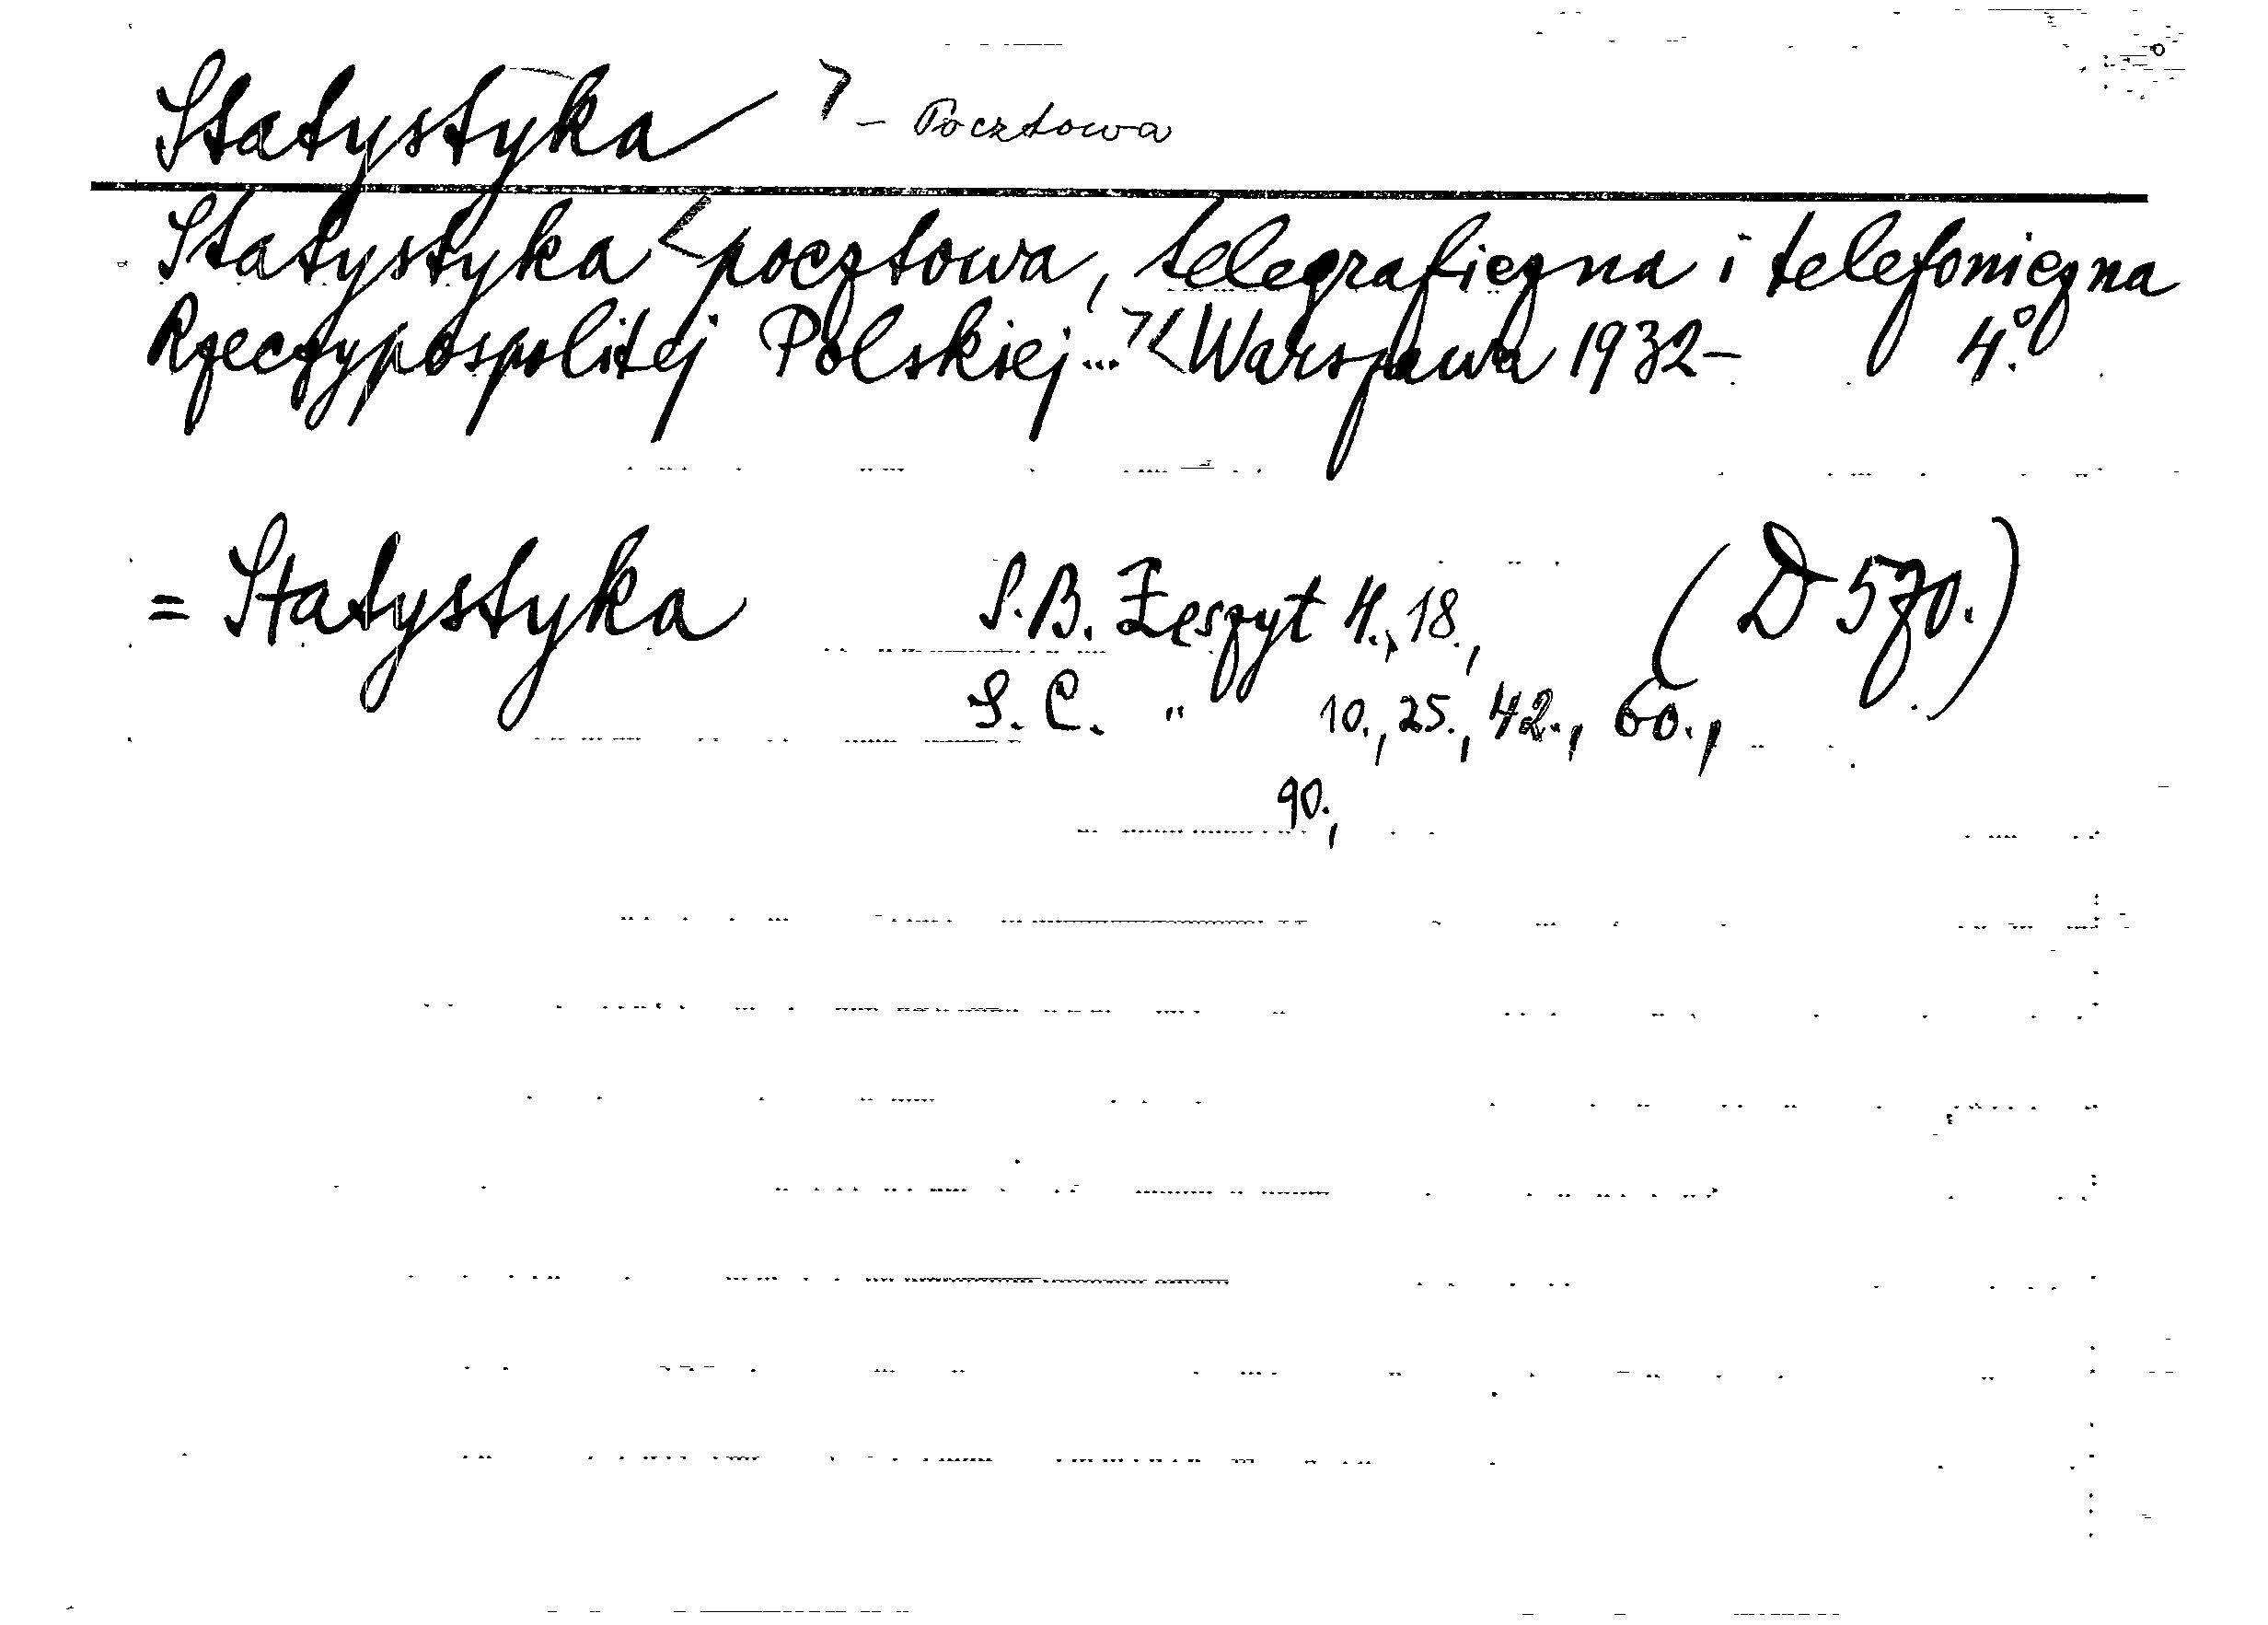 Statystyka > - Pocztowa
Statystyka < pocztowa, telegraficzna i telefoniczna
Rzeczypospolitej Polskiej... > < Warszawa 1932- 4.°
= Statystyka S.B. Zeszyt 4., 18., (D 570.)
S.C. " 10., 25., 42., 60.,
90.,